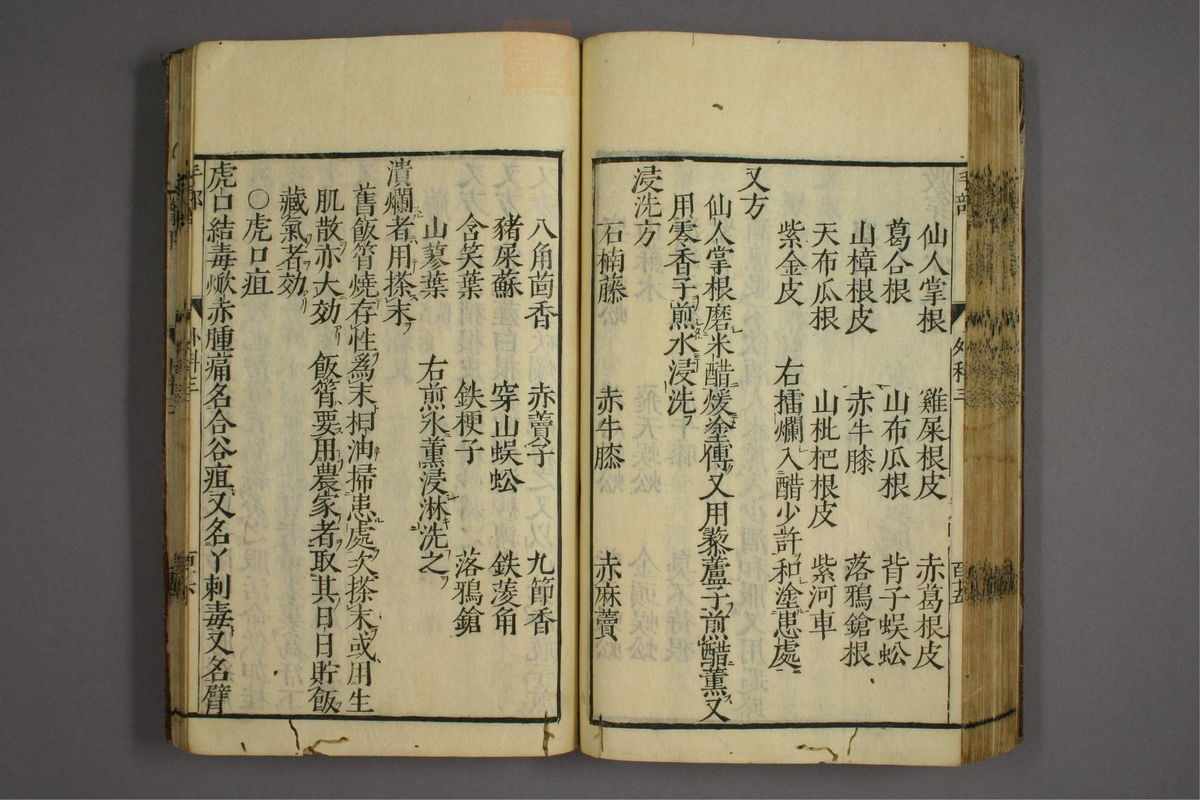 仙人掌根　雞屎根皮　赤葛根皮
葛合根　山布瓜根　背子蜈蚣
山樟根皮　赤牛膝　落鴉鎗根
天布瓜根　山枇杷根皮　紫河車
紫金皮　右擂爛入醋少許和塗患處
又方
仙人掌根磨米醋煖塗傅又用藜蘆子煎醋薰又
用零香子煎水浸洗
浸洗方
石楠藤　赤牛膝　赤麻藚
八角茴香　赤藚子　九節香
豬屎蘇　穿山蜈蚣　鉄菱角
含笑葉　鉄梗子　落鴉鎗
山蓼葉　右煎水薰浸淋洗之
潰爛者用搽末
舊飯筲燒存性為末桕油掃患處次搽末或用生
肌散亦大効　飯筲要用農家者取其日日貯飯
藏氣者効
〇虎口疽
虎口結毒焮赤腫痛名合谷疽又名丫刺毒又名臂
手部　外科三　百五